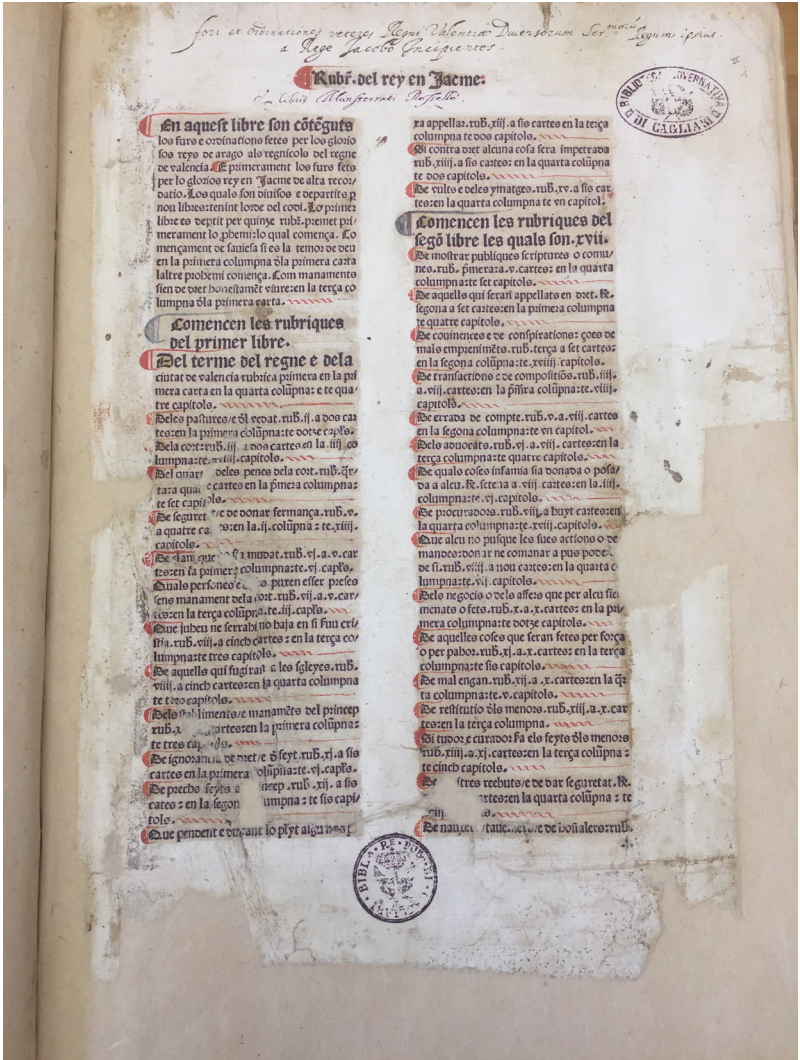 fori et ordinationes veteres Regni Valentiæ Diversorum Ser.morũ Regum ipsius.
a Rege Jacobo Incipientes.
Rubr̃. del rey en Jacme:
Ex libris Monserrati Rossello.
BIBLIOTECA GOVERNATIVA DI CAGLIARI
En aquest libre son cõtẽguts
los furs e ordinations fetes per los glorio
sos reys de arago als regnicols del regne
de valencia. E primerament los furs fets
per lo glorios rey en Jacme de alta recor/
datio. Los quals son diuisos e departits p
nou libres: tenint lorde del codi. Lo primer
libre es deptit per quinze rubr̃. premet pri/
merament lo phemi: lo qual comença. Co
mençament de sauiesa si es la temor de deu
en la primera columpna ðla primera carta
laltre prohemi comença. Com manaments
sien de dret honestamẽt viure: en la terça co
lumpna ðla primera carta.
Comencen les rubriques
del primer libre.
Del terme del regne e dela
ciutat de valencia rubrica primera en la pri
mera carta en la quarta colũpna: e te qua/
tre capitols.
Deles pastures/e ðl vedat. rub̃. ij. a dos car
tes: en la primera colũpna: te dotze capl̃s.
De la cort: rub̃. iij. a dos cartes en la .iiij. co
lumpna: te. xviij. capitols.
Del quart deles penes dela cort. rub̃. q̃r/
tara quat e cartes en la p̃mera columpna:
te set capitols.
De seguret t/e de donar fermança. rub̃. v.
a quatre ca s: en la. ij. colũpna : te. xiiij.
capitols.
De clam que mudat. rub̃. vj. a. v. car
tes: en la primera columpna: te. vj. capl̃s.
Quals persones e puxen esser preses
sens manament dela cort. rub̃. vij. a. v. car/
tes: en la terça colũpna. te. iij. capl̃s.
Que juheu ne serrahi no haja en si seu cri/
stia. rub̃. viij. a cinch cartes : en la terça co/
lumpna: te tres capitols.
De aquells qui fugiran a les sgleyes. rub̃.
viiij. a cinch cartes: en la quarta columpna
te tres capitols.
Dels stabliments/e manamẽts del princep
rub̃. x cartes: en la primera colũpna:
te tres capitols.
De ignorancia de dret/e ð feyt. rub̃. xj. a sis
cartes en la primera colũpna: te. vj. capl̃s.
De prechs feyts a princep . rub̃. xij. a sis
cates : en la segon umpna : te sis capi/
tols.
Que pendent e durant lo plyt alguna p
xa appellar. rub̃. xiij. a sis cartes en la terça
columpna te dos capitols.
Si contra dret alcuna cosa sera impetrada
rub̃. xiiij. a sis cartes: en la quarta colũpna
te dos capitols.
De vults e deles ymatges. rub̃. xv. a sis car
tes: en la quarta columpna te vn capitol.
Comencen les rubriques del
segõ libre les quals son. xvij.
De mostrar publiques scriptures o comu/
nes. rub̃. p̃mera: a. v. cartes: en la quarta
columpna: te set capitols.
De aquells qui seran appellats en dret. R̃.
segona a set cartes: en la primera columpna
te quatre capitols.
De couinences e de conspirations: ço es de
mals empreniments. rub̃. terça a set cartes:
en la segona colũpna: te. xviiij. capitols.
De transactions e de compositiõs. rub̃. iiij.
a. viij. cartes: en la p̃mra colũpna: te. viij.
capitols.
De errada de compte. rub̃. v. a. viij. cartes
en la segona columpna: te vn capitol.
Dels aduocats. rub̃. vj. a. viij. cartes: en la
terça columpna: te quatre capitols.
De quals coses infamia sia donada o posa/
da a alcu. R̃. setena a. viij. cartes en la. iiij.
columpna: te. vj. capitols.
De procuradors. rub̃. viij. a huyt cartes: en
la quarta columpna: te. xvij. capitols.
Que alcu no pusque les sues actions o de
mandes donar ne comanar a pus pode:
de si. rub̃. viiij. a nou cartes: en la quarta c
lumpna: te. vij. capitols.
Dels negocis o dels affers que per alcu sien
menats o fets. rub̃. x. a. x. cartes: en la pri/
mera columpna: te dotze capitols.
De aquelles coses que seran fetes per força
o per pahor. rub̃. xj. a. x. cartes: en la terça
columpna: te sis capitols.
De mal engan. rub̃. xij. a .x. cartes: en la q̃r
ta columpna: te. v. capitols.
De restitutio ðls menors. rub̃. xiij. a. x. car
tes: en la terça columpna.
Si tudor e curador fa els feyts ðls menors
rub̃. xiiij. a. xj. cartes: en la terça colũpna :
te cinch capitols.
De itres rebuts/e de dar seguretat. R̃.
rtes: en la quarta colũpna : te
De nauxe /e de hostalers: rub̃.